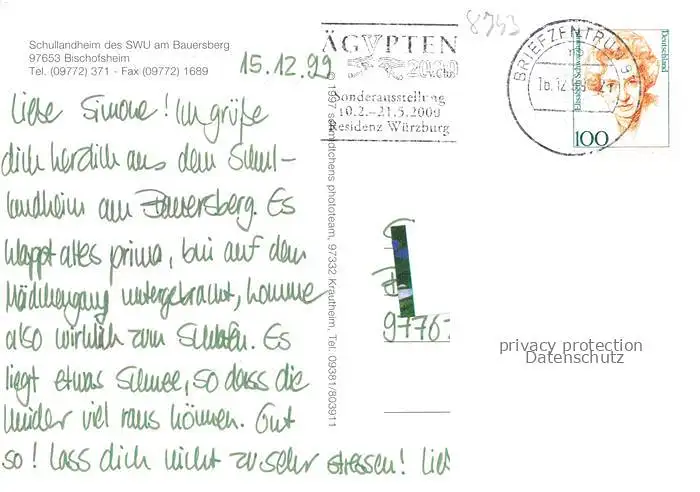 Schullandheim des SWU am Bauersberg
97653 Bischofsheim
Tel. (09772) 371 - Fax (09772) 1689
15.12.99
Liebe Simone! Ich grüße
dich herzlich aus dem Schul-
landheim am Bauersberg. Es
klappt alles prima, bin auf dem
Mädchengang untergebracht, komme
also wirklich zum Schlafen. Es
liegt etwas Schnee, so dass die
Kinder viel raus können. Gut
so! Lass dich nicht zu sehr stressen!
© 1997 schmidtchens phototeam, 97332 Krautheim, Tel. 09381/803911
8743
ÄGYPTEN
2000 v.Chr.
Sonderausstellung
10.2.–21.5.2000
Residenz Würzburg
BRIEFZENTRUM 9
Deutschland
100
9776
privacy protection
Datenschutz